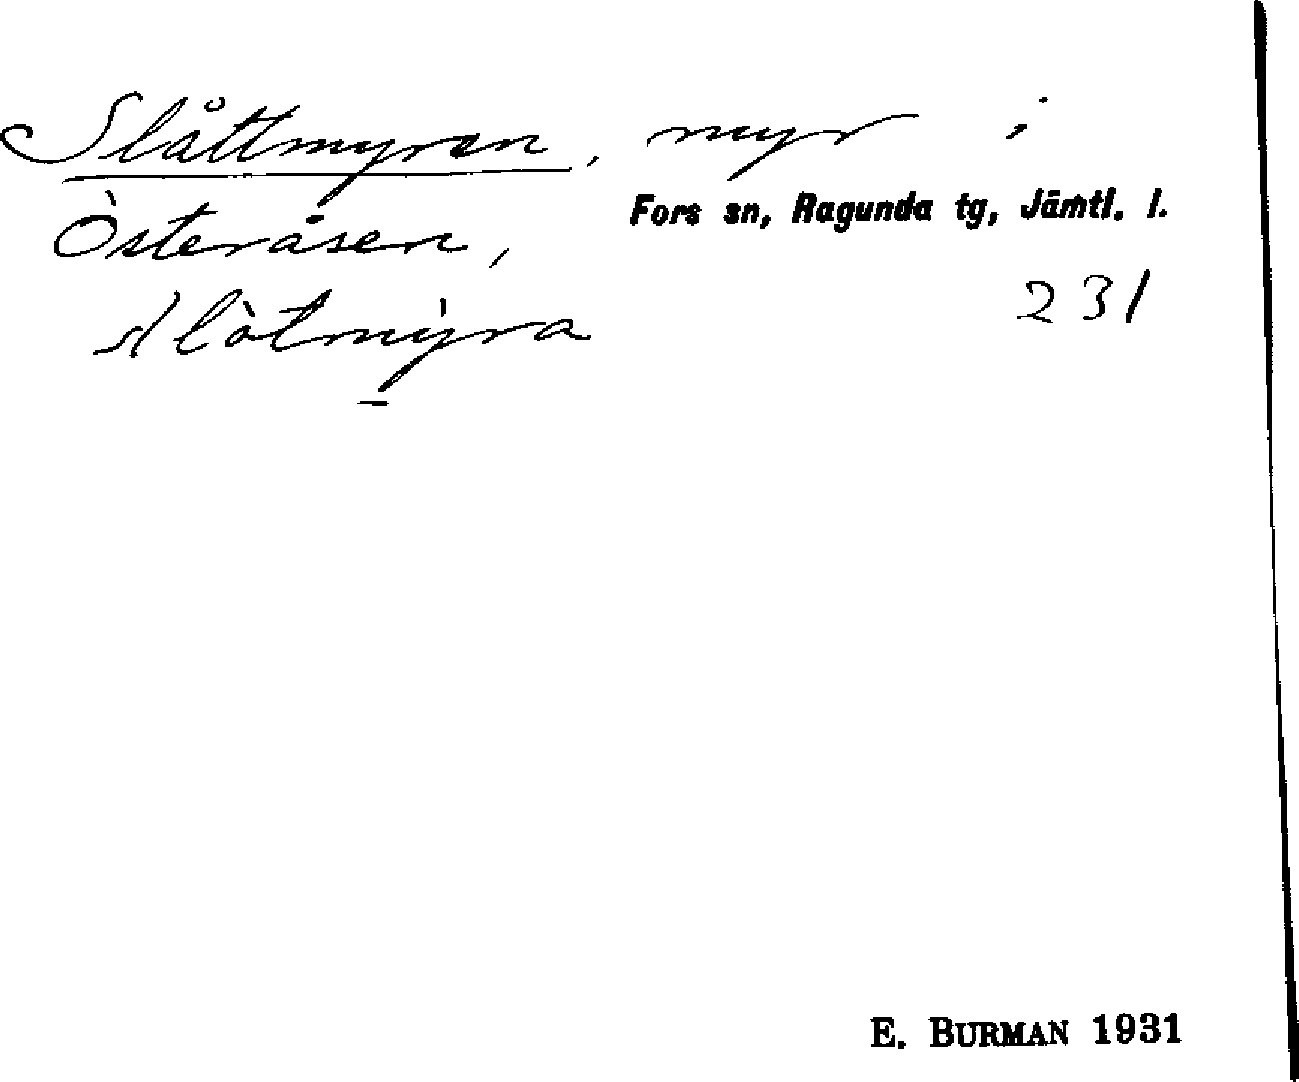 Slåttmyren, myr i
Österåsen, Fors sn, Ragunda tg, Jämtl. l.
231
E. BURMAN 1931